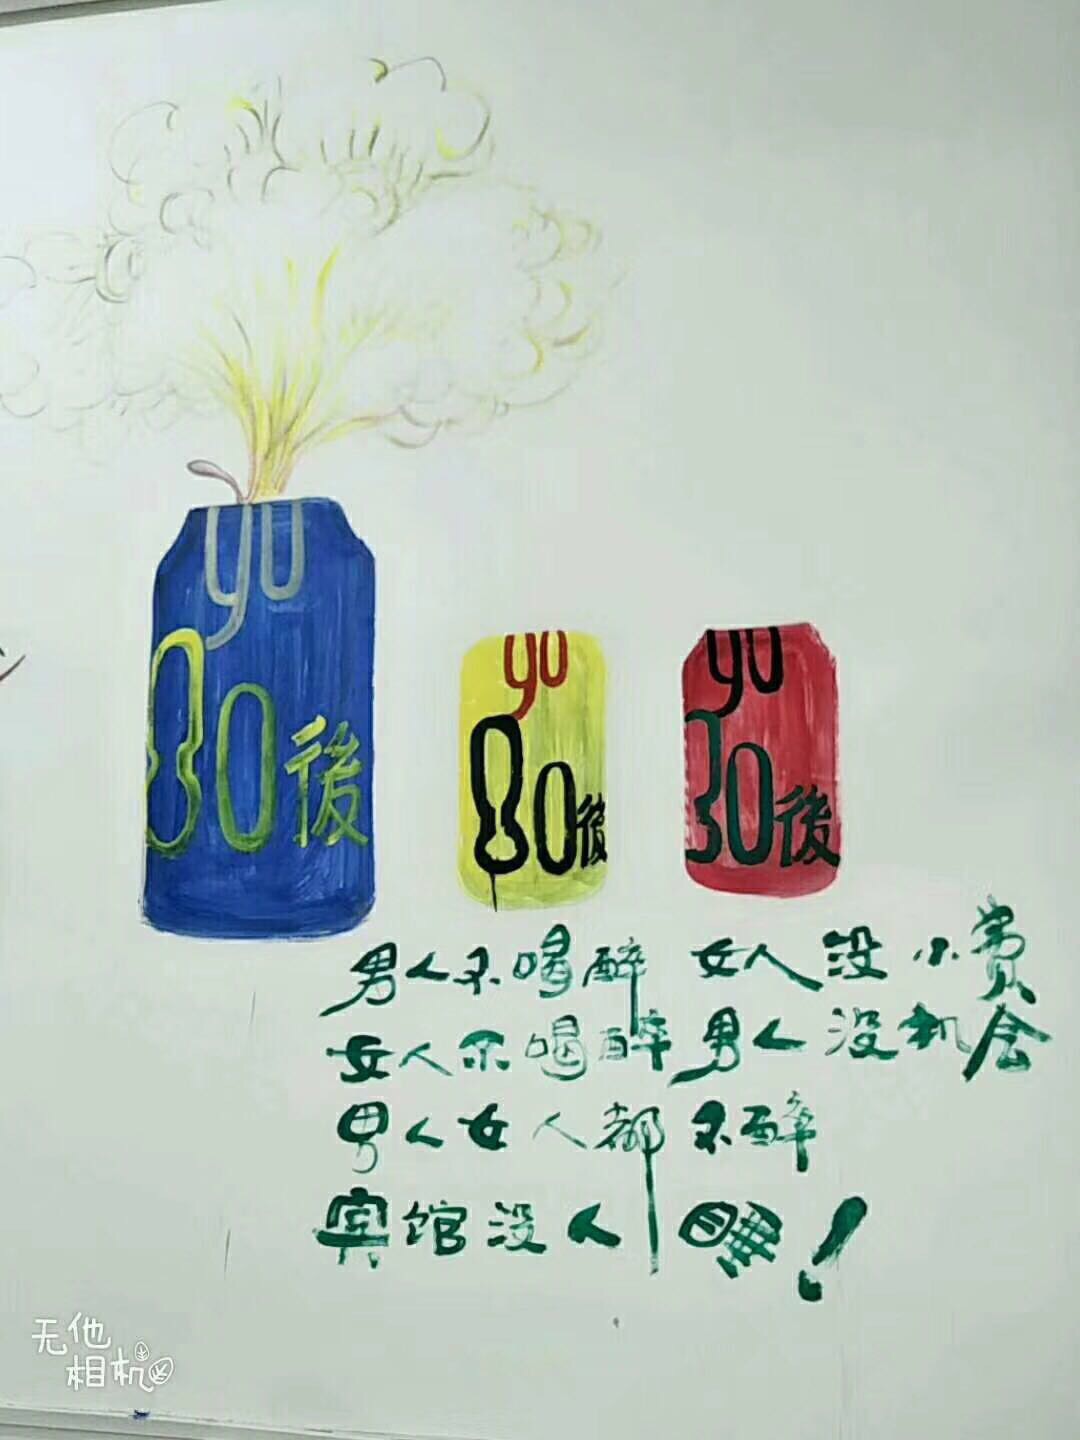 yo
80後
yo
80後
yo
80後
男人不喝醉 女人没小费
女人不喝醉 男人没机会
男人女人都不醉
宾馆没人睡！
无他
相机